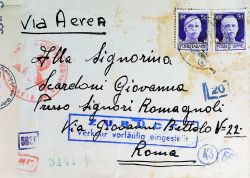 Via Aerea
Alla Signorina
Scardoni Giovanna
Presso Signori Romagnoli
20
ZURÜCK
Verkehr vorläufig eingestellt
Via Giovanni Bettolo N=22.
Roma